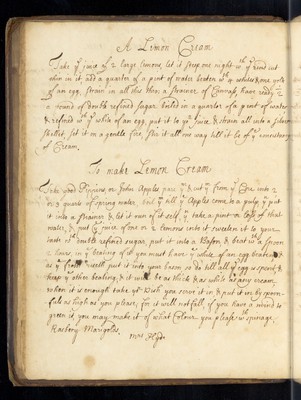 A Limon Cream
Take yͤ juice of 2 large Limons, let it steep one night wᵗʰ yͤ Rind cut
thin in it, add a quarter of a peint of water beaten wᵗʰ 4 whites & one yolk
of an egg, strain in all this thro a strainer of Canvass, have ready
a pound of double refined sugar, boiled in a quarter of a peint of water
& refined wᵗʰ yͤ white of an egg, put it to yͤ juice, & strain all into a silver
skellet, set it on a gentle fire, stir it all one way till it be of yͤ consistency
of Cream.
To make Limon Cream
Take good Pippins or John Apples pare yᵐ & cut yᵐ from yͤ Core, into 2
or 3 quarts of spring water, boil yᵐ till yͤ Apples come to a pulp, yⁿ put
it into a strainer & let it run of it self, yⁿ take a peint of that
water, & put yͤ juice of one or 2 Lemons into it sweeten it to your
taste wᵗʰ double refined sugar, put it into a Bason & beat it wᵗʰ a spoon
2 hours, in yͤ beating of it you must have yͤ white of an egg beaten &
as yͤ froth riseth put it into your bason, so do till all yͤ egg is spent, &
keep yͤ other beating, & it will be as thick & as white as any cream,
when it is enough take yͤ Dish you serve it in, & put it in by spoon-
fuls as high as you please, for it will not fall, if you have a mind to
green it, you may make it of what Colour you please wᵗʰ spinage,
Rasbery Marigolds.